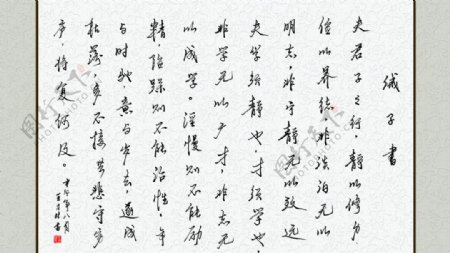 诫子書
夫君子之行，静以修身
俭以养德，非淡泊无以
明志，非宁静无以致远
夫学须静也，才须学也，
非学无以广才，非志无
以成学。淫慢则不能励
精，险躁则不能治性。年
与时驰，意与岁去，遂成
枯落，多不接世，悲守穷
庐，将复何及。
年八月